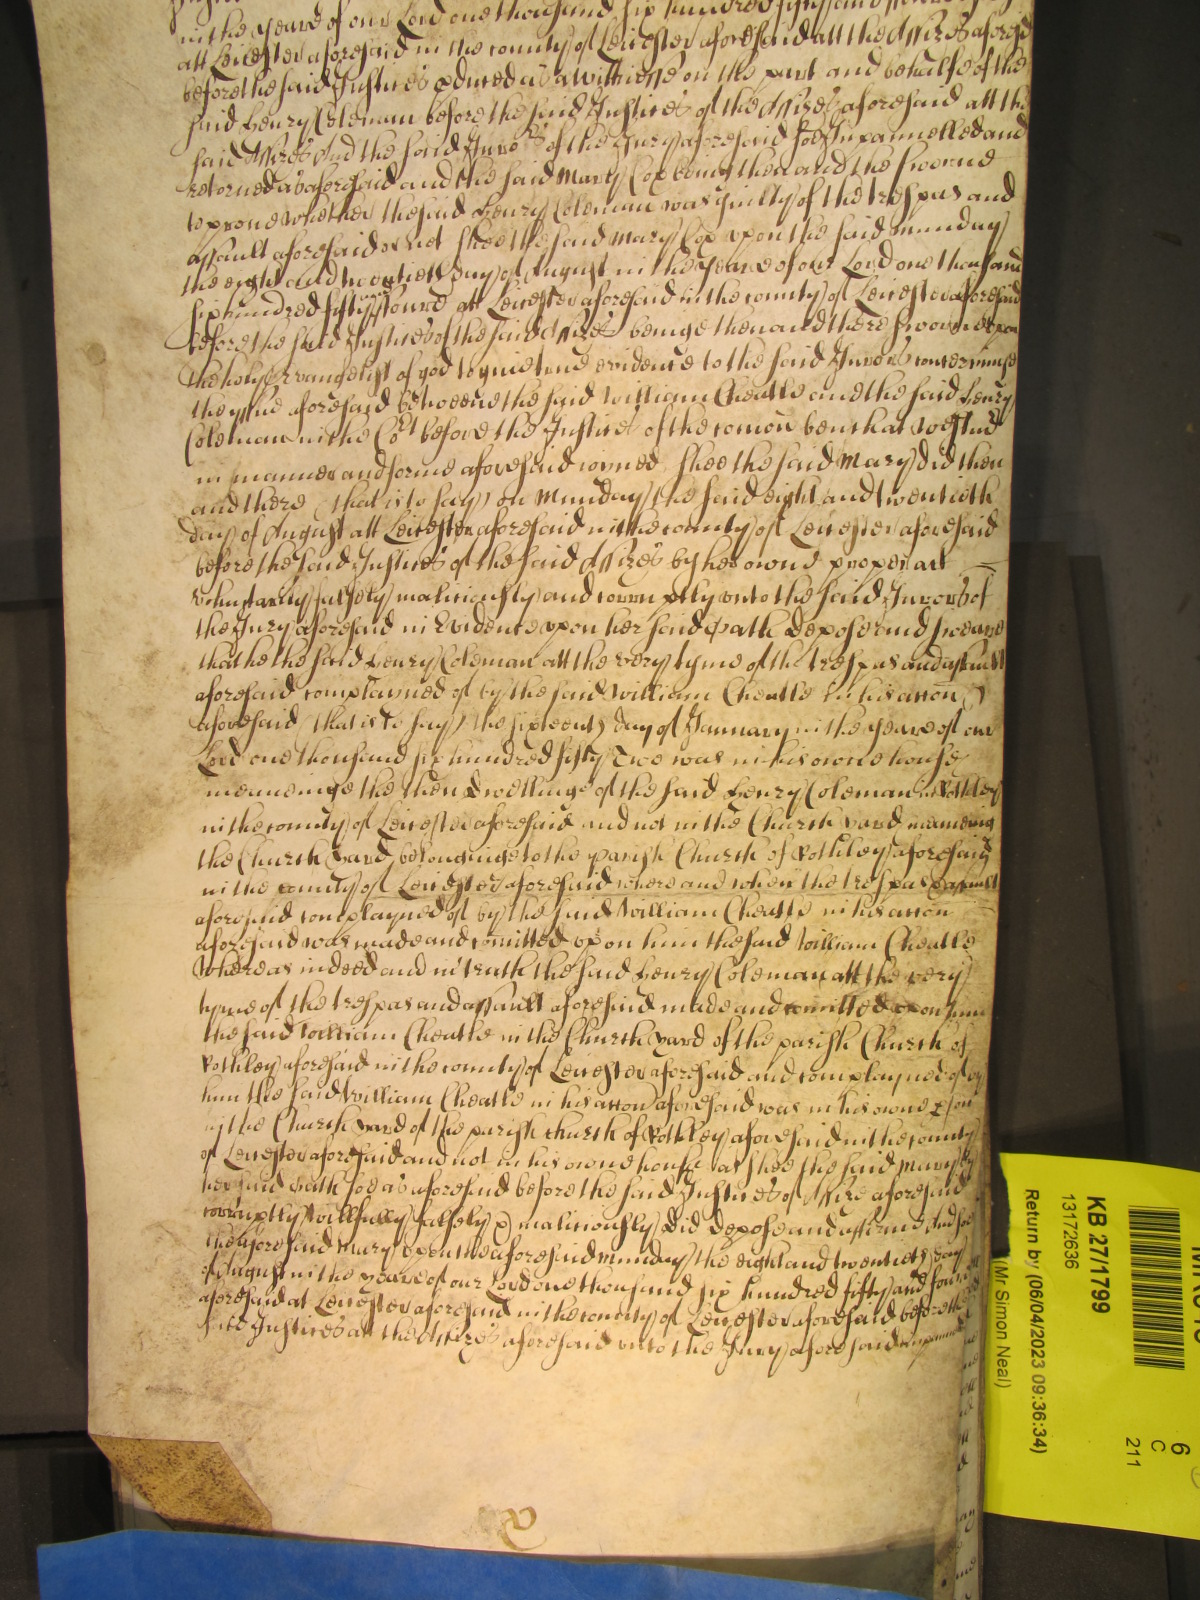 in the yeare of our Lord one thousand six hundred fifty and
att Leicester aforesaid in the county of Leicester aforesaid att the Assizes aforesd
before the said Justices pduced as a wittnesse on the part and behalfe of the
said Henry Coleman before the said Justices of the Assizes aforesaid att the
said Assizes And the said Juro's of the Jury aforesaid soe Inpannelled and
retorned as aforesaid and the said Mary Cox being then and there sworne
to prove whether the said Henry Coleman was guilty of the trespas and
assault aforesaid or not shee the said Mary Cox upon the said munday
the eight and twentieth day of August in the yeare of our Lord one thousand
six hundred fifty and foure att Leicester aforesaid in the county of Leicester aforesaid
before the said Justices of the said Assizes beinge then and there sworne upon
the holy Evangelist of god to give true evidence to the said Jurors concerninge
the yssue aforesaid betweene the said William Cheatle and the said Henry
Coleman in the Cort before the Justices of the comon bench att Westmr
in manner and forme aforesaid ioyned shee the said Mary did then
and there (that is to say) on Munday the said eight and twentieth
day of August att Leicester aforesaid in the county of Leicester aforesaid
before the said Justices of the said Assizes by her owne proper act
voluntarily falsely maliciously and corruptly unto the said Jurors of
the Jury aforesaid in Evidence upon her said oath depose and sweare
that he the said Henry Coleman att the very tyme of the trespas and assault
aforesaid complayned of by the said William Cheatle in his accon
aforesaid (that is to say) the sixteenth day of January in the yeare of our
Lord one thousand six hundred fifty Two was in his owne house
meaneinge the then dwellinge of the said Henry Coleman in Rothley
in the county of Leicester aforesaid and not in the Church yard meaneing
the Church yard belonginge to the parish Church of Rothley aforesaid
in the county of Leicester aforesaid where and when the trespas & assault
aforesaid complayned of by the said William Cheatle in his accon
aforesaid was made and comitted upon him the said William Cheatle
Whereas indeed and in truth the said Henry Coleman att the very
tyme of the trespas and assault aforesaid made and comitted upon him
the said William Cheatle in the Church yard of the parish Church of
Rothley aforesaid in the county of Leicester aforesaid and complayned of by
him the said William Cheatle in his accon aforesaid was in his owne pson
in the Church yard of the parish church of Rothley aforesaid in the county
of Leicester aforesaid and not in his owne house as shee the said Mary by
her said oath soe as aforesaid before the said Justices of Assize aforesaid
corruptly willfully falsely & maliciously did depose and affirme And soe
the aforesaid Mary upon the aforesaid munday the eight and twentieth day
of August in the yeare of our Lord one thousand six hundred fifty and foure
aforesaid at Leicester aforesaid in the county of Leicester aforesaid before the
said Justices att the Assizes aforesaid unto the Jury aforesaid
KB 27/1799
13172636
Return by (06/04/2023 09:36:34)
(Mr Simon Neal)
6
C
211